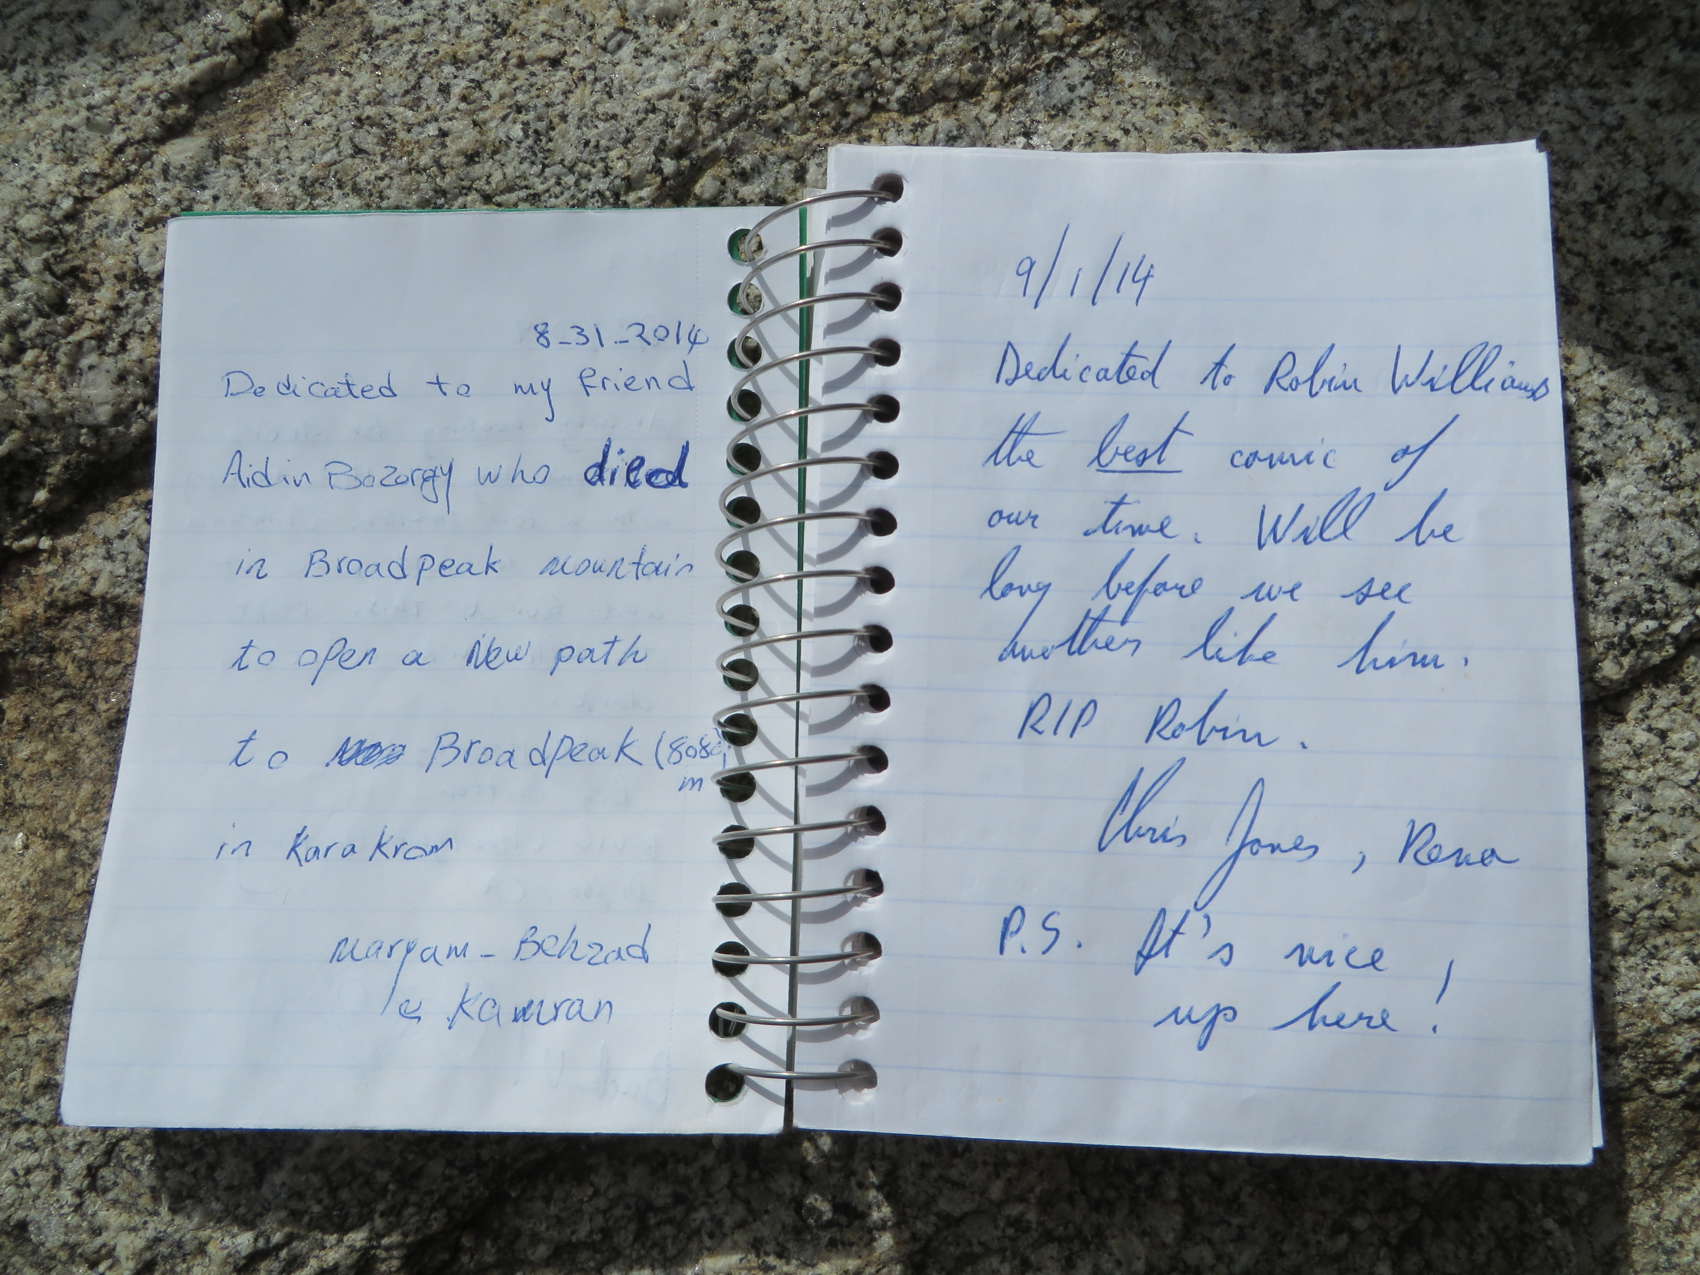 8-31-2014
Dedicated to my friend
Aidin Bozorgy who died
in Broadpeak mountain
to open a New path
to Broadpeak (808
m
in Karakrom
Maryam - Behzad
& Kamran
9/1/14
Dedicated to Robin Williams
the best comic of
our time. Will be
long before we see
another like him.
RIP Robin.
Chris Jones, Reno
P.S. It's nice
up here!